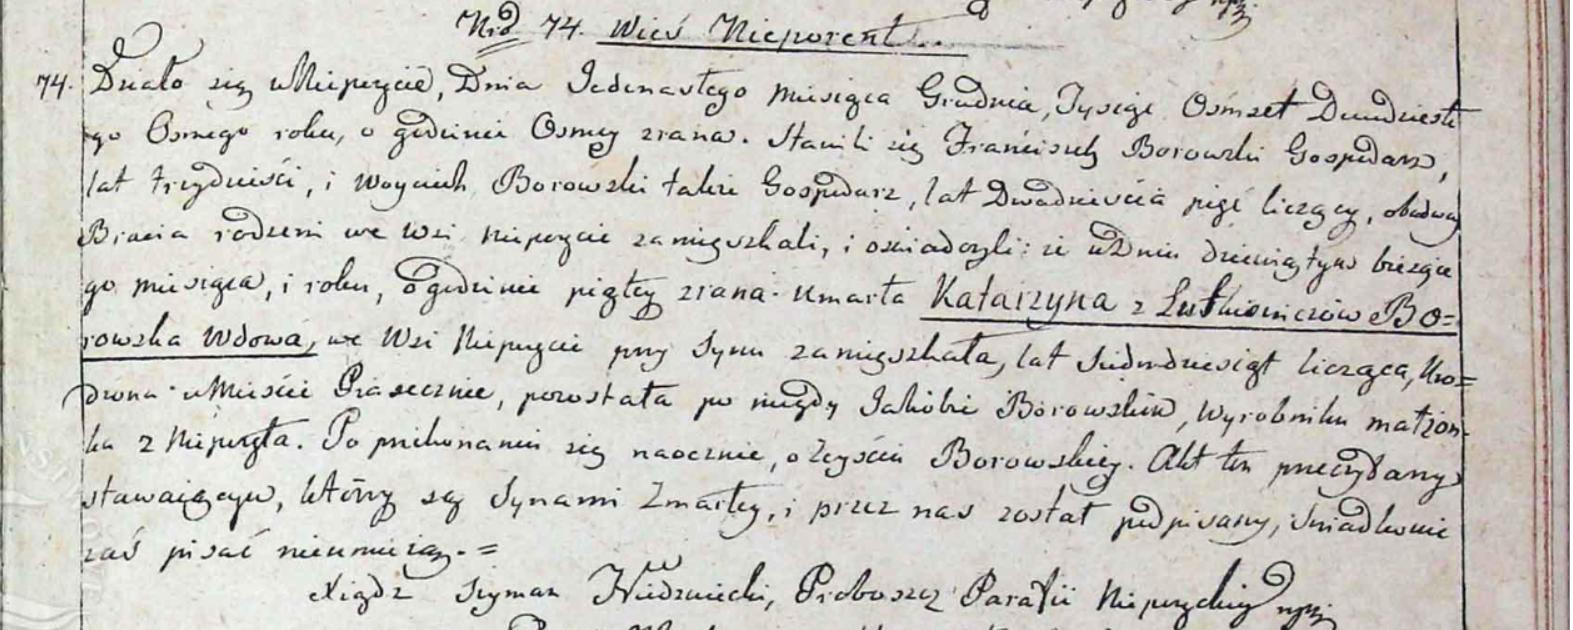 Nro 74. Wieś Nieporent..
74. Działo się w Nieporęcie, Dnia Jedenastego Miesiąca Grudnia, Tysiąc Osmset Dwudzieste
go Osmego roku, o godzinie Osmey zrana. Stawili się Franciszek Borowski Gospodarz,
lat trzydzieści, i Woyciech Borowski także Gospodarz, lat Dwadzieścia pięć liczący, obadway
Bracia rodzeni we Wsi Nieporęcie zamięszkali, i oswiadczyli: iż w Dniu dziewiątym bieżące
go miesiąca, i roku, o godzinie piątey zrana umarła Katarzyna z Lutkiewiczów Bo=
rowska Wdowa, we Wsi Nieporęcie przy Synu zamięszkała, lat Siedmdziesiąt licząca, Uro=
dzona w Mieście Piasecznie, pozostała po niegdy Jakobie Borowskim, Wyrobniku małżon-
ka z Nieporęta. Po przekonaniu się naocznie, o Zeyściu Borowskiey. Akt ten przeczytany
stawaiącym, którzy są Synami Zmarłey, i przez nas został podpisany, Swiadkowie
zaś pisać nieumieią. =
Xiądz Szyman Proboszcz Parafii Nieporęckiey mpp